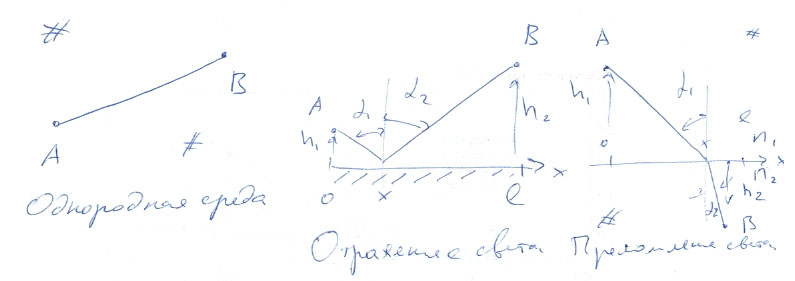 #
B
A
#
Однородная среда
A
h₁
α₁
α₂
B
h₂
x
0
x
l
Отражение света
A
#
h₁
α₁
0
x
l
n₁
x
n₂
h₂
α₂
B
#
Преломление света